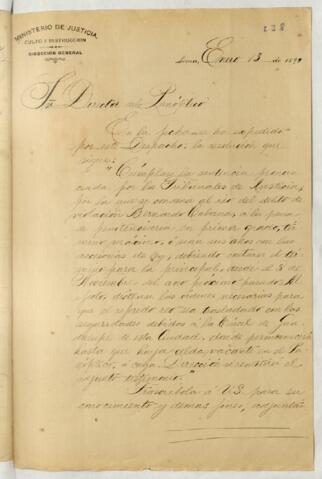 MINISTERIO DE JUSTICIA,
CULTO É INSTRUCCION
DIRECCIÓN GENERAL
128
Lima, Enero 13 de 189
Sr. Director del Panóptico
En la fecha se ha expedido
por este Despacho la resolucion que
sigue:
"Cúmplase la sentencia pronun
ciada por los Tribunales de Justicia,
por la que se condena al reo del delito de
violación Bernardo Cabrera, a la pena
de penitenciaría en primer grado, tér
mino máximo, ó sean seis años con las
accesorias de ley, debiendo contarse el tér
mino para la principal, desde el 8 de
Noviembre del año próximo pasado. Al
efecto, díctense las órdenes necesarias para
que el referido reo sea trasladado con las
seguridades debidas á la Cárcel de Gua
dalupe de esta Ciudad, donde permanecerá
hasta que haya celda vacante en el Pa
nóptico, á cuya Dirección se remitirá el
adjunto testimonio."
Trascríbola á US. para su
conocimiento y demas fines, adjuntán